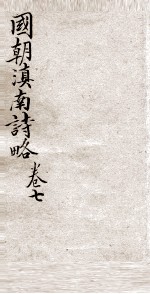 國朝滇南詩略卷七